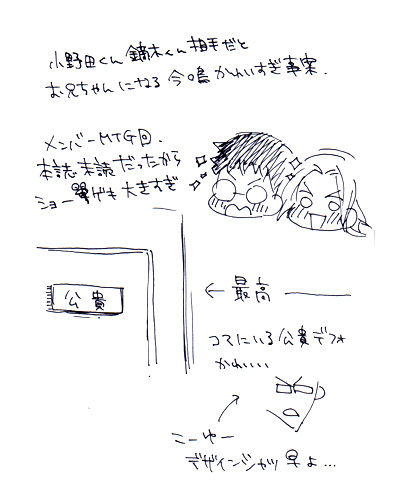 小野田くん鏑木くん相手だと
お兄ちゃんになる今鳴かわいすぎ事案.
メンバーMTG回.
本誌未読だったから
ショー撃げき大きすぎ
公貴
← 最高
コマにいる公貴デフォ
かわいい
こーゆー
デザインシャツ早よ…